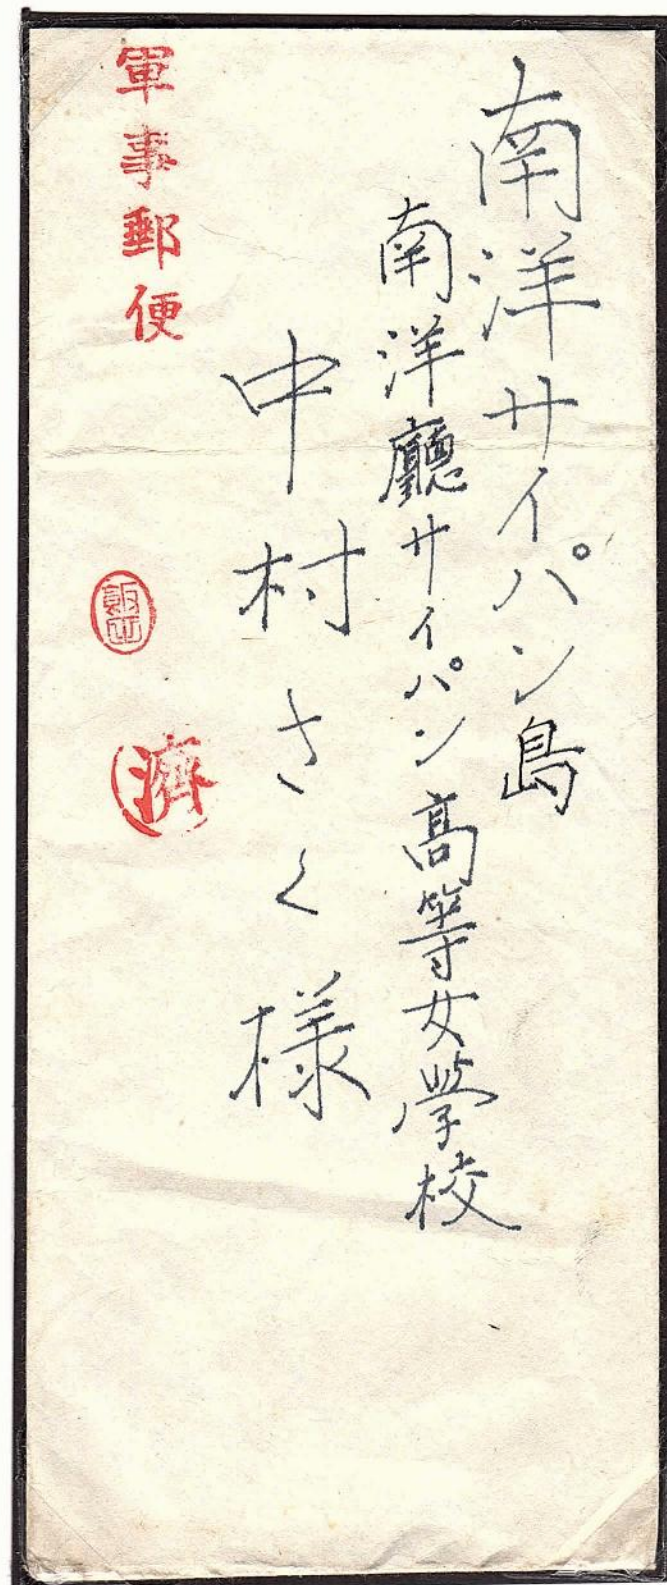 南洋サイパン島
南洋廳サイパン高等女学校
中村さく様
軍事郵便
濟